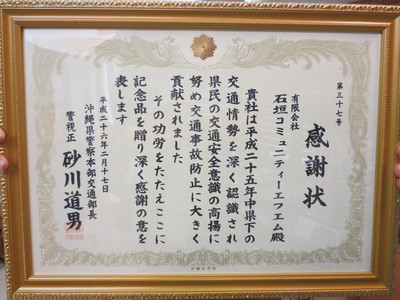 第三十七号
感謝状
有限会社
石垣コミュニティーエフエム殿
貴社は平成二十五年中県下の
交通情勢を深く認識され
県民の交通安全意識の高揚に
努め交通事故防止に大きく
貢献されました
その功労をたたえここに
記念品を贈り深く感謝の意を
表します
平成二十六年二月十七日
沖縄県警察本部交通部長
警視正 砂川道男